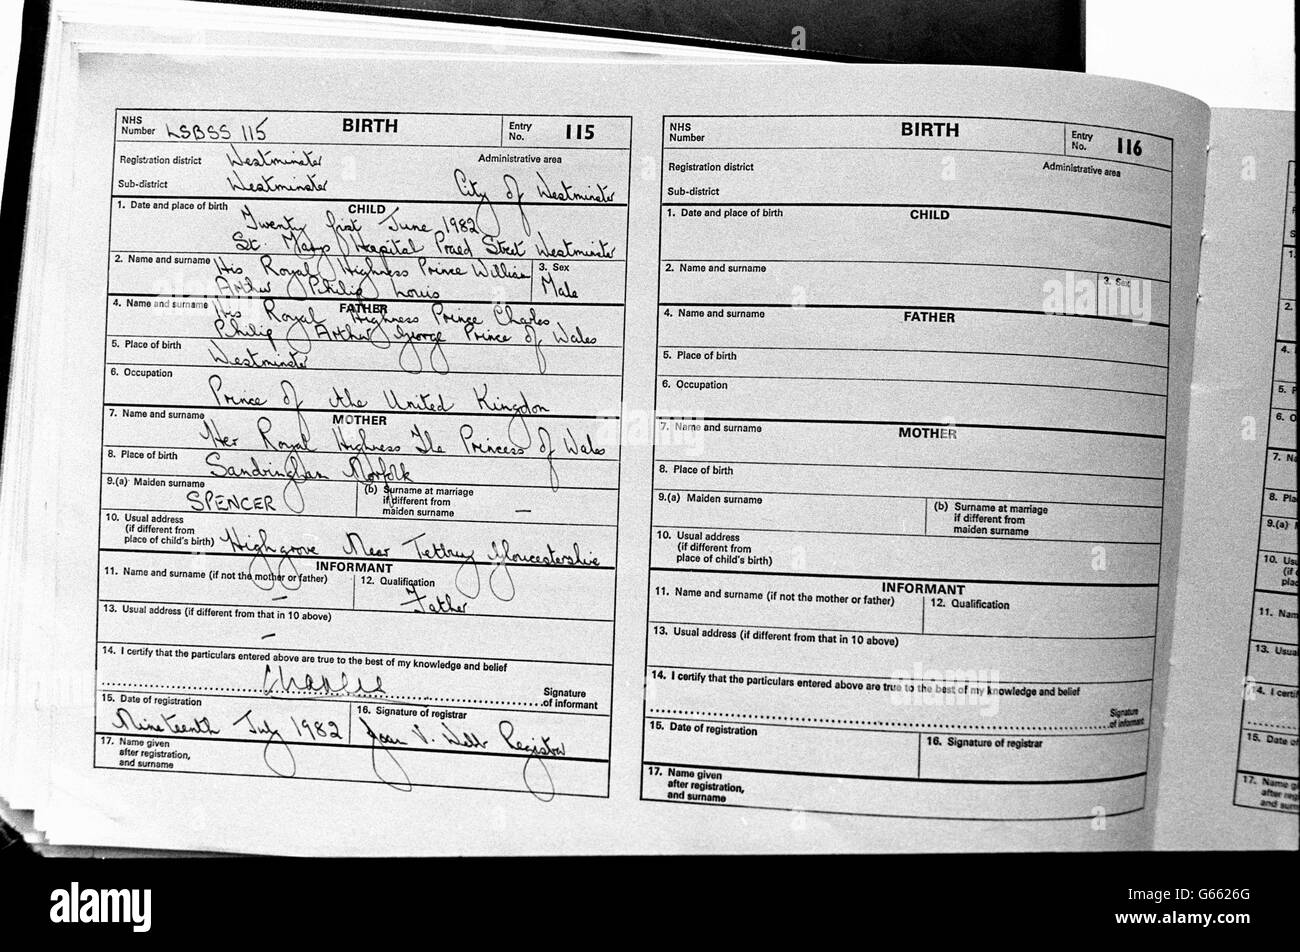 NHS Number LSBSS 115 BIRTH Entry No. 115
Registration district Westminster Administrative area
Sub-district Westminster City of Westminster
1. Date and place of birth CHILD
Twenty first June 1982
St. Marys Hospital Praed Street Westminster
2. Name and surname His Royal Highness Prince William
Arthur Philip Louis
3. Sex
Male
4. Name and surname FATHER
His Royal Highness Prince Charles
Philip Arthur George Prince of Wales
5. Place of birth Westminster
6. Occupation Prince of the United Kingdom
7. Name and surname MOTHER
Her Royal Highness The Princess of Wales
8. Place of birth Sandringham Norfolk
9.(a) Maiden surname
SPENCER
(b) Surname at marriage
if different from
maiden surname –
10. Usual address
(if different from
place of child's birth) Highgrove Near Tetbury Gloucestershire
INFORMANT
11. Name and surname (if not the mother or father)
–
12. Qualification
Father
13. Usual address (if different from that in 10 above)
–
14. I certify that the particulars entered above are true to the best of my knowledge and belief
Charles Signature
of informant
15. Date of registration
Nineteenth July 1982
16. Signature of registrar
Joan V. Webb Registrar
17. Name given
after registration,
and surname
NHS Number BIRTH Entry No. 116
Registration district Administrative area
Sub-district
1. Date and place of birth CHILD
2. Name and surname
3. Sex
4. Name and surname FATHER
5. Place of birth
6. Occupation
7. Name and surname MOTHER
8. Place of birth
9.(a) Maiden surname
(b) Surname at marriage
if different from
maiden surname
10. Usual address
(if different from
place of child's birth)
INFORMANT
11. Name and surname (if not the mother or father)
12. Qualification
13. Usual address (if different from that in 10 above)
14. I certify that the particulars entered above are true to the best of my knowledge and belief
Signature
of informant
15. Date of registration
16. Signature of registrar
17. Name given
after registration,
and surname
alamy
Image ID: G6626G
www.alamy.com